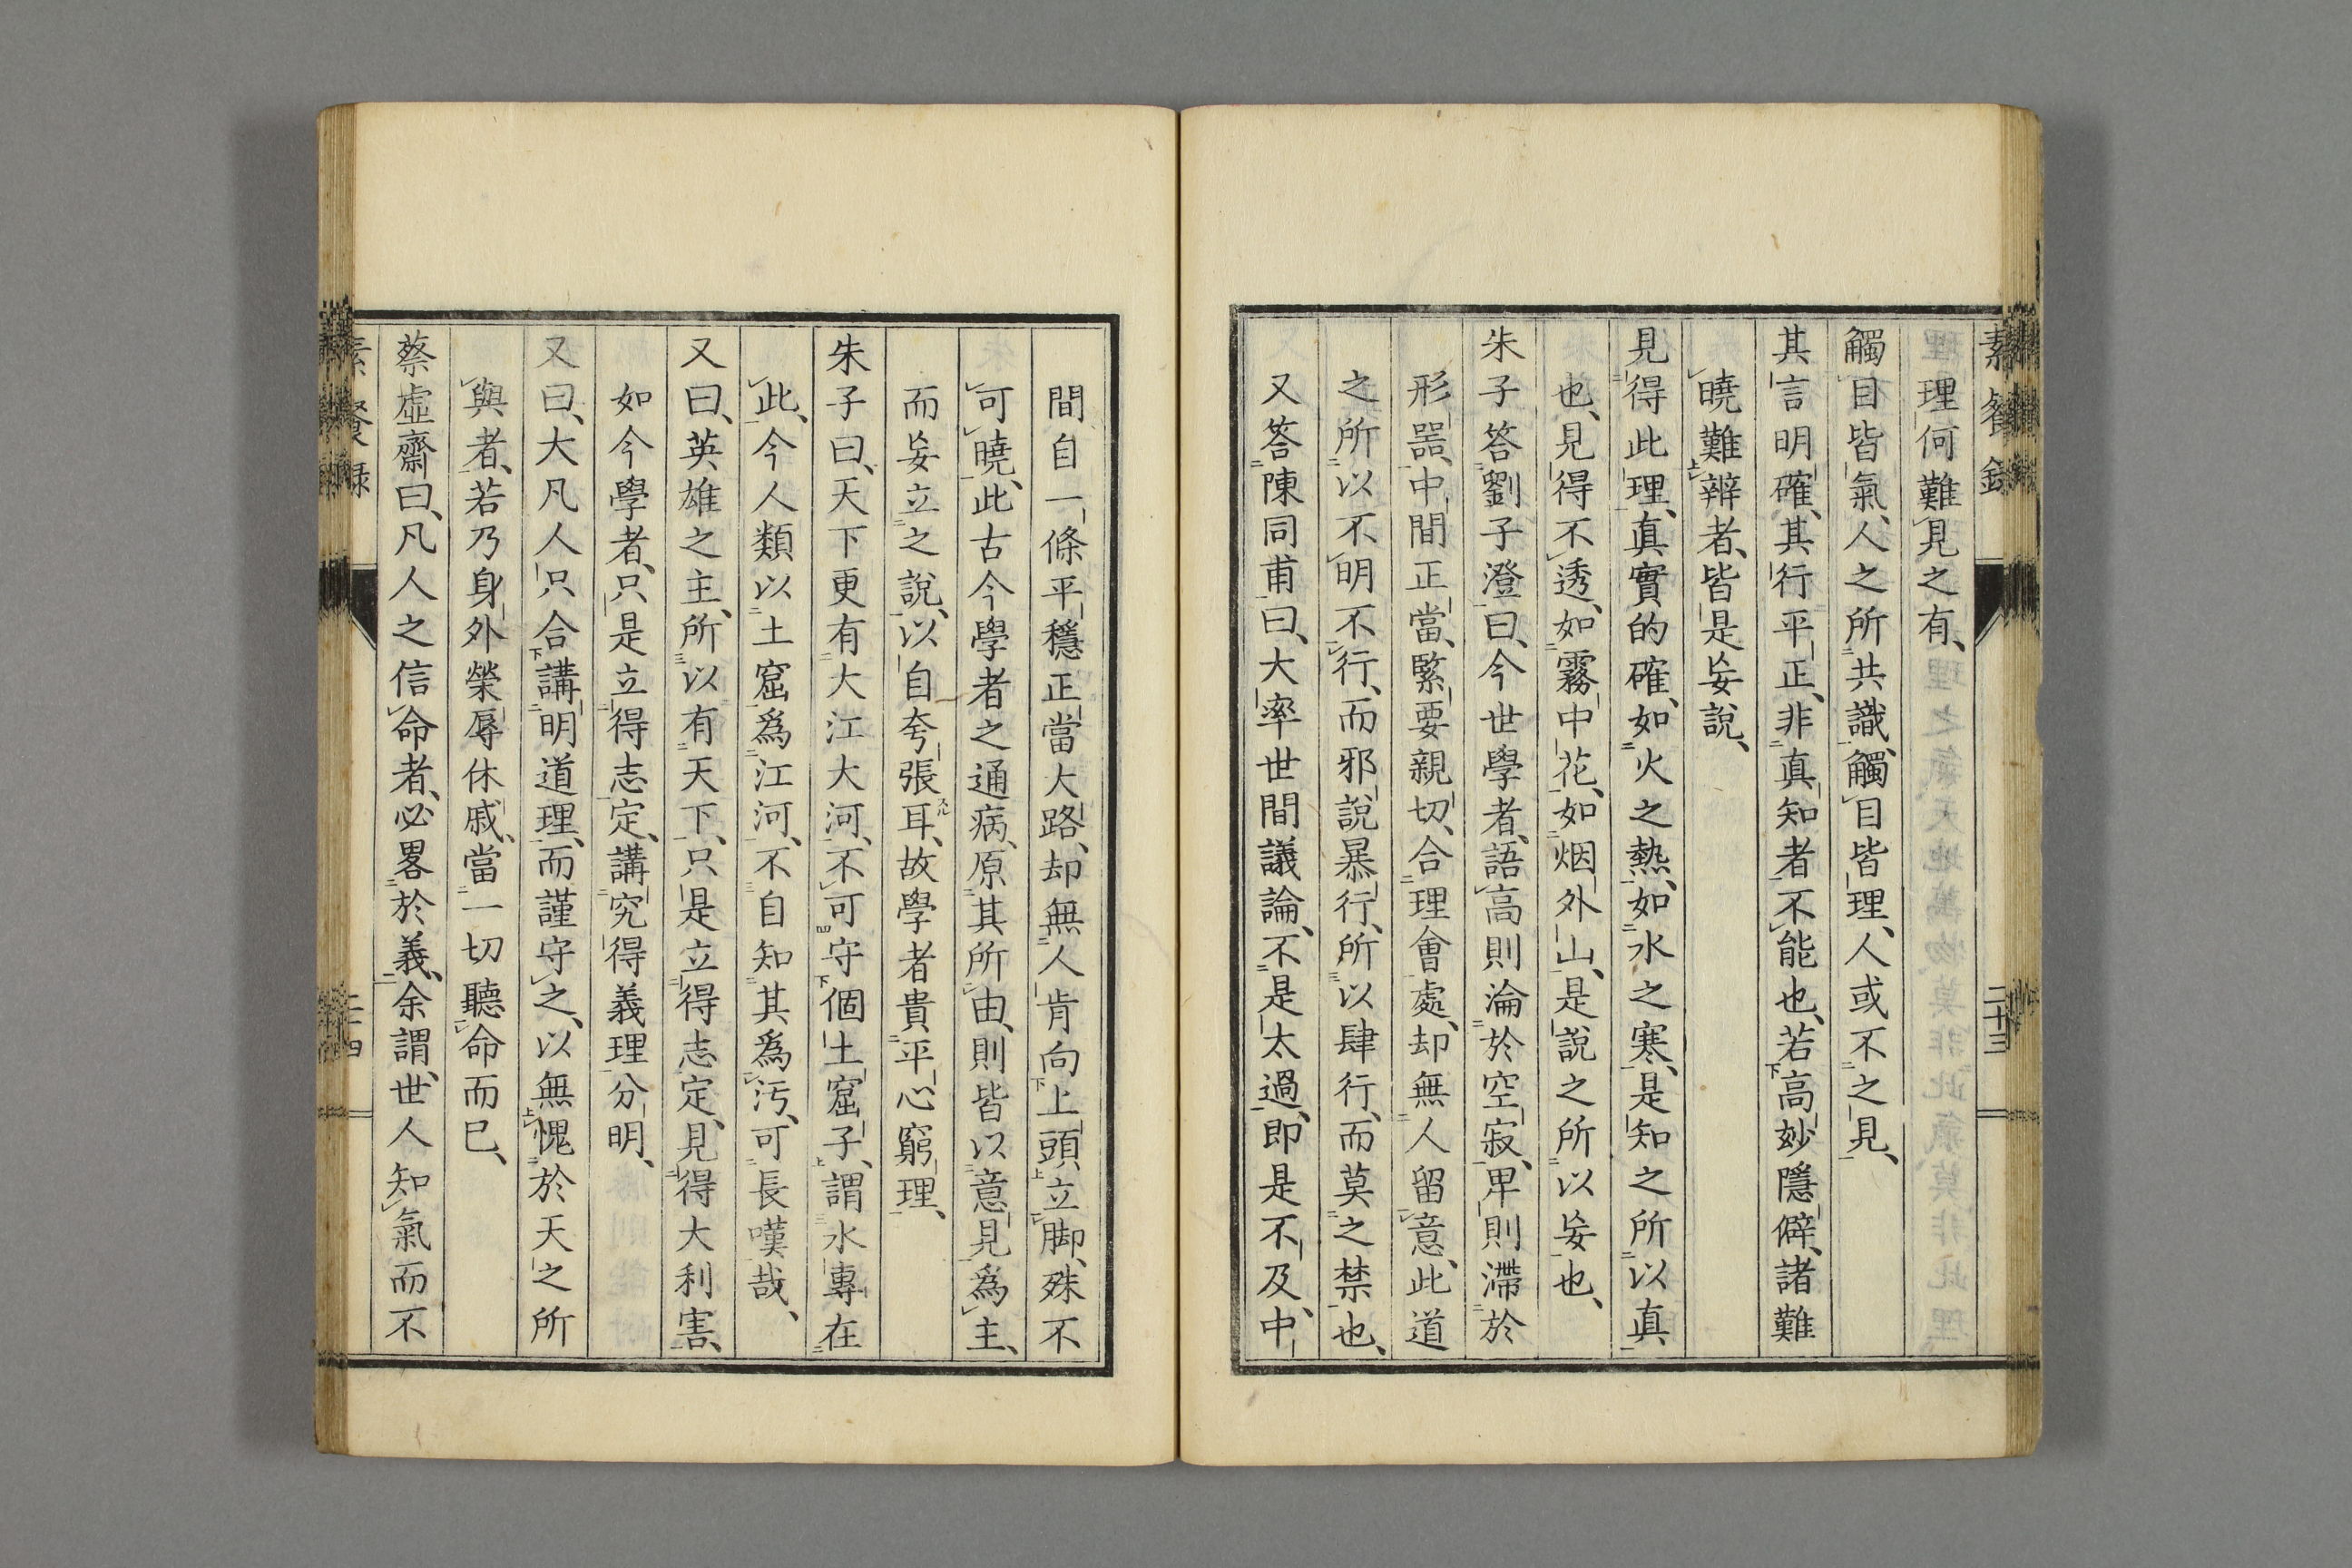 素餐錄
二十三
理何難見之有、
觸目皆氣、人之所共識、觸目皆理、人或不之見、
其言明確、其行平正、非真知者不能也、若高妙隱僻、諸難
曉難辨者、皆是妄說、
見得此理、真實的確、如火之熱、如水之寒、是知之所以真
也、見得不透、如霧中花、如烟外山、是說之所以妄也、
朱子答劉子澄曰、今世學者、語高則淪於空寂、卑則滯於
形噐、中間正當、緊要親切、合理會處、却無人留意、此道
之所以不明不行、而邪說暴行、所以肆行、而莫之禁也、
又答陳同甫曰、大率世間議論、不是太過、即是不及、中
間自一條平穩正當大路、却無人肯向上頭立脚、殊不
可曉、此古今學者之通病、原其所由、則皆以意見為主、
而妄立之說、以自夸張耳、故學者貴平心窮理、
朱子曰、天下更有大江大河、不可守個土窟子、謂水專在
此、今人類以土窟爲江河、不自知其爲汚、可長嘆哉、
又曰、英雄之主、所以有天下、只是立得志定、見得大利害、
如今學者、只是立得志定、講究得義理分明、
又曰、大凡人只合講明道理、而謹守之、以無愧於天之所
與者、若乃身外榮辱休戚、當一切聽命而已、
蔡虛齋曰、凡人之信命者、必畧於義、余謂、世人知氣而不
素餐錄
二十四